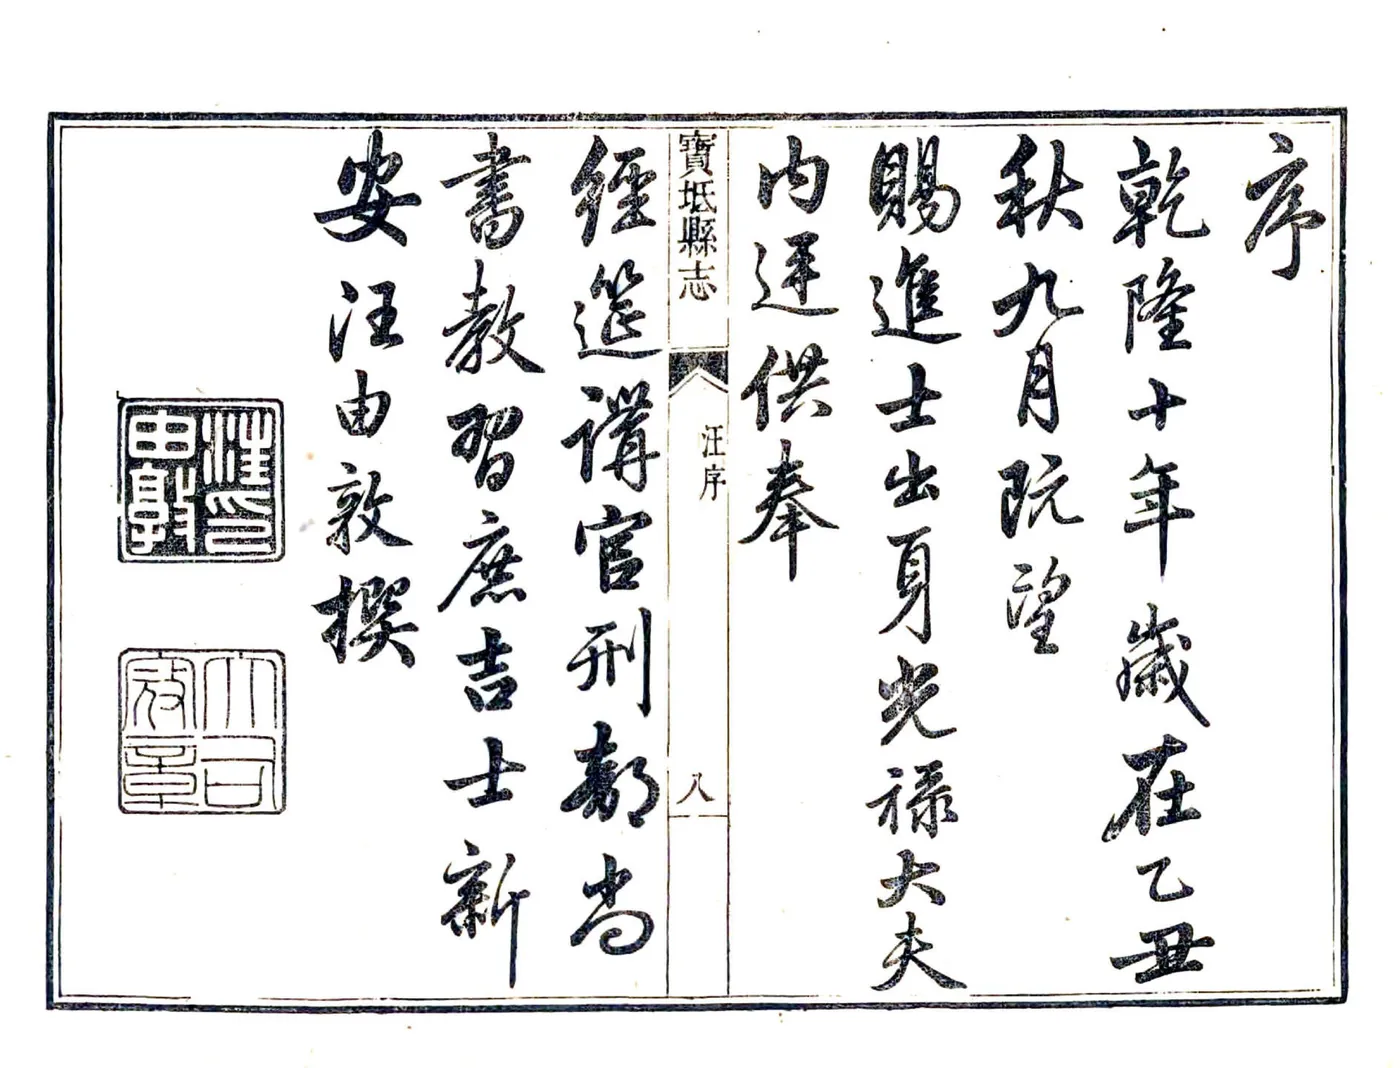 序
乾隆十年歲在乙丑
秋九月既望
賜進士出身光祿大夫
内廷供奉
寶坻縣志
汪序
八
經筵講官刑部尚
書教習庶吉士新
安汪由敦撰
汪印由敦
大司寇章